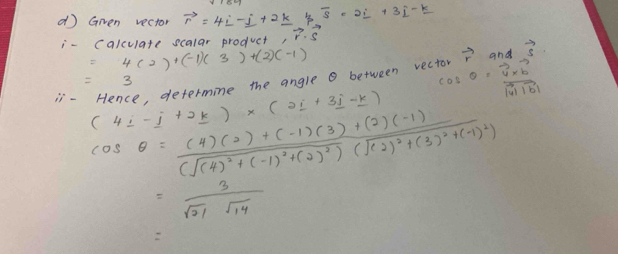 d) Given vector r⃗ = 4i - j + 2k & s̅ = 2i + 3j - k
i- Calculate scalar product, r⃗ · s⃗
= 4(2)+(-1)(3)+(2)(-1)
= 3
ii- Hence, determine the angle θ between vector r⃗ and s⃗.
(4i - j + 2k) × (2i + 3j - k)
cos θ = a⃗ × b⃗ / |a| |b|
cos θ = (4)(2) + (-1)(3) + (2)(-1)
(√(4)² + (-1)² + (2)²) (√(2)² + (3)² + (-1)²)
= 3 / √21 √14
=